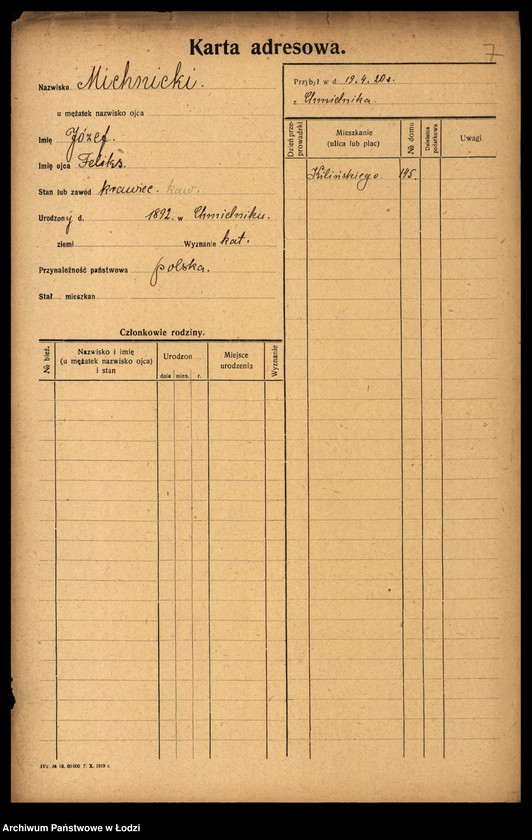 Karta adresowa.
7
Nazwisko Michnicki.
u mężatek nazwisko ojca
Imię Józef.
Imię ojca Feliks.
Stan lub zawód krawiec. kaw.
Urodzony d. 1892. w Chmielniku.
ziemi Wyznanie kat.
Przynależność państwowa polska.
Stał. mieszkan
Przybył w d. 19.4.20 r.
z Chmielnika.
Dzień przeprowadzki
Mieszkanie
(ulica lub plac)
№ domu
Dzielnica podatkowa
Uwagi
Kilińskiego. 145.
Członkowie rodziny.
№ bież.
Nazwisko i imię
(u mężatek nazwisko ojca)
i stan
Urodzon
dnia mies. r.
Miejsce
urodzenia
Wyznanie
IVz. № 18. 60 000 7. X. 1919 r.
Archiwum Państwowe w Łodzi